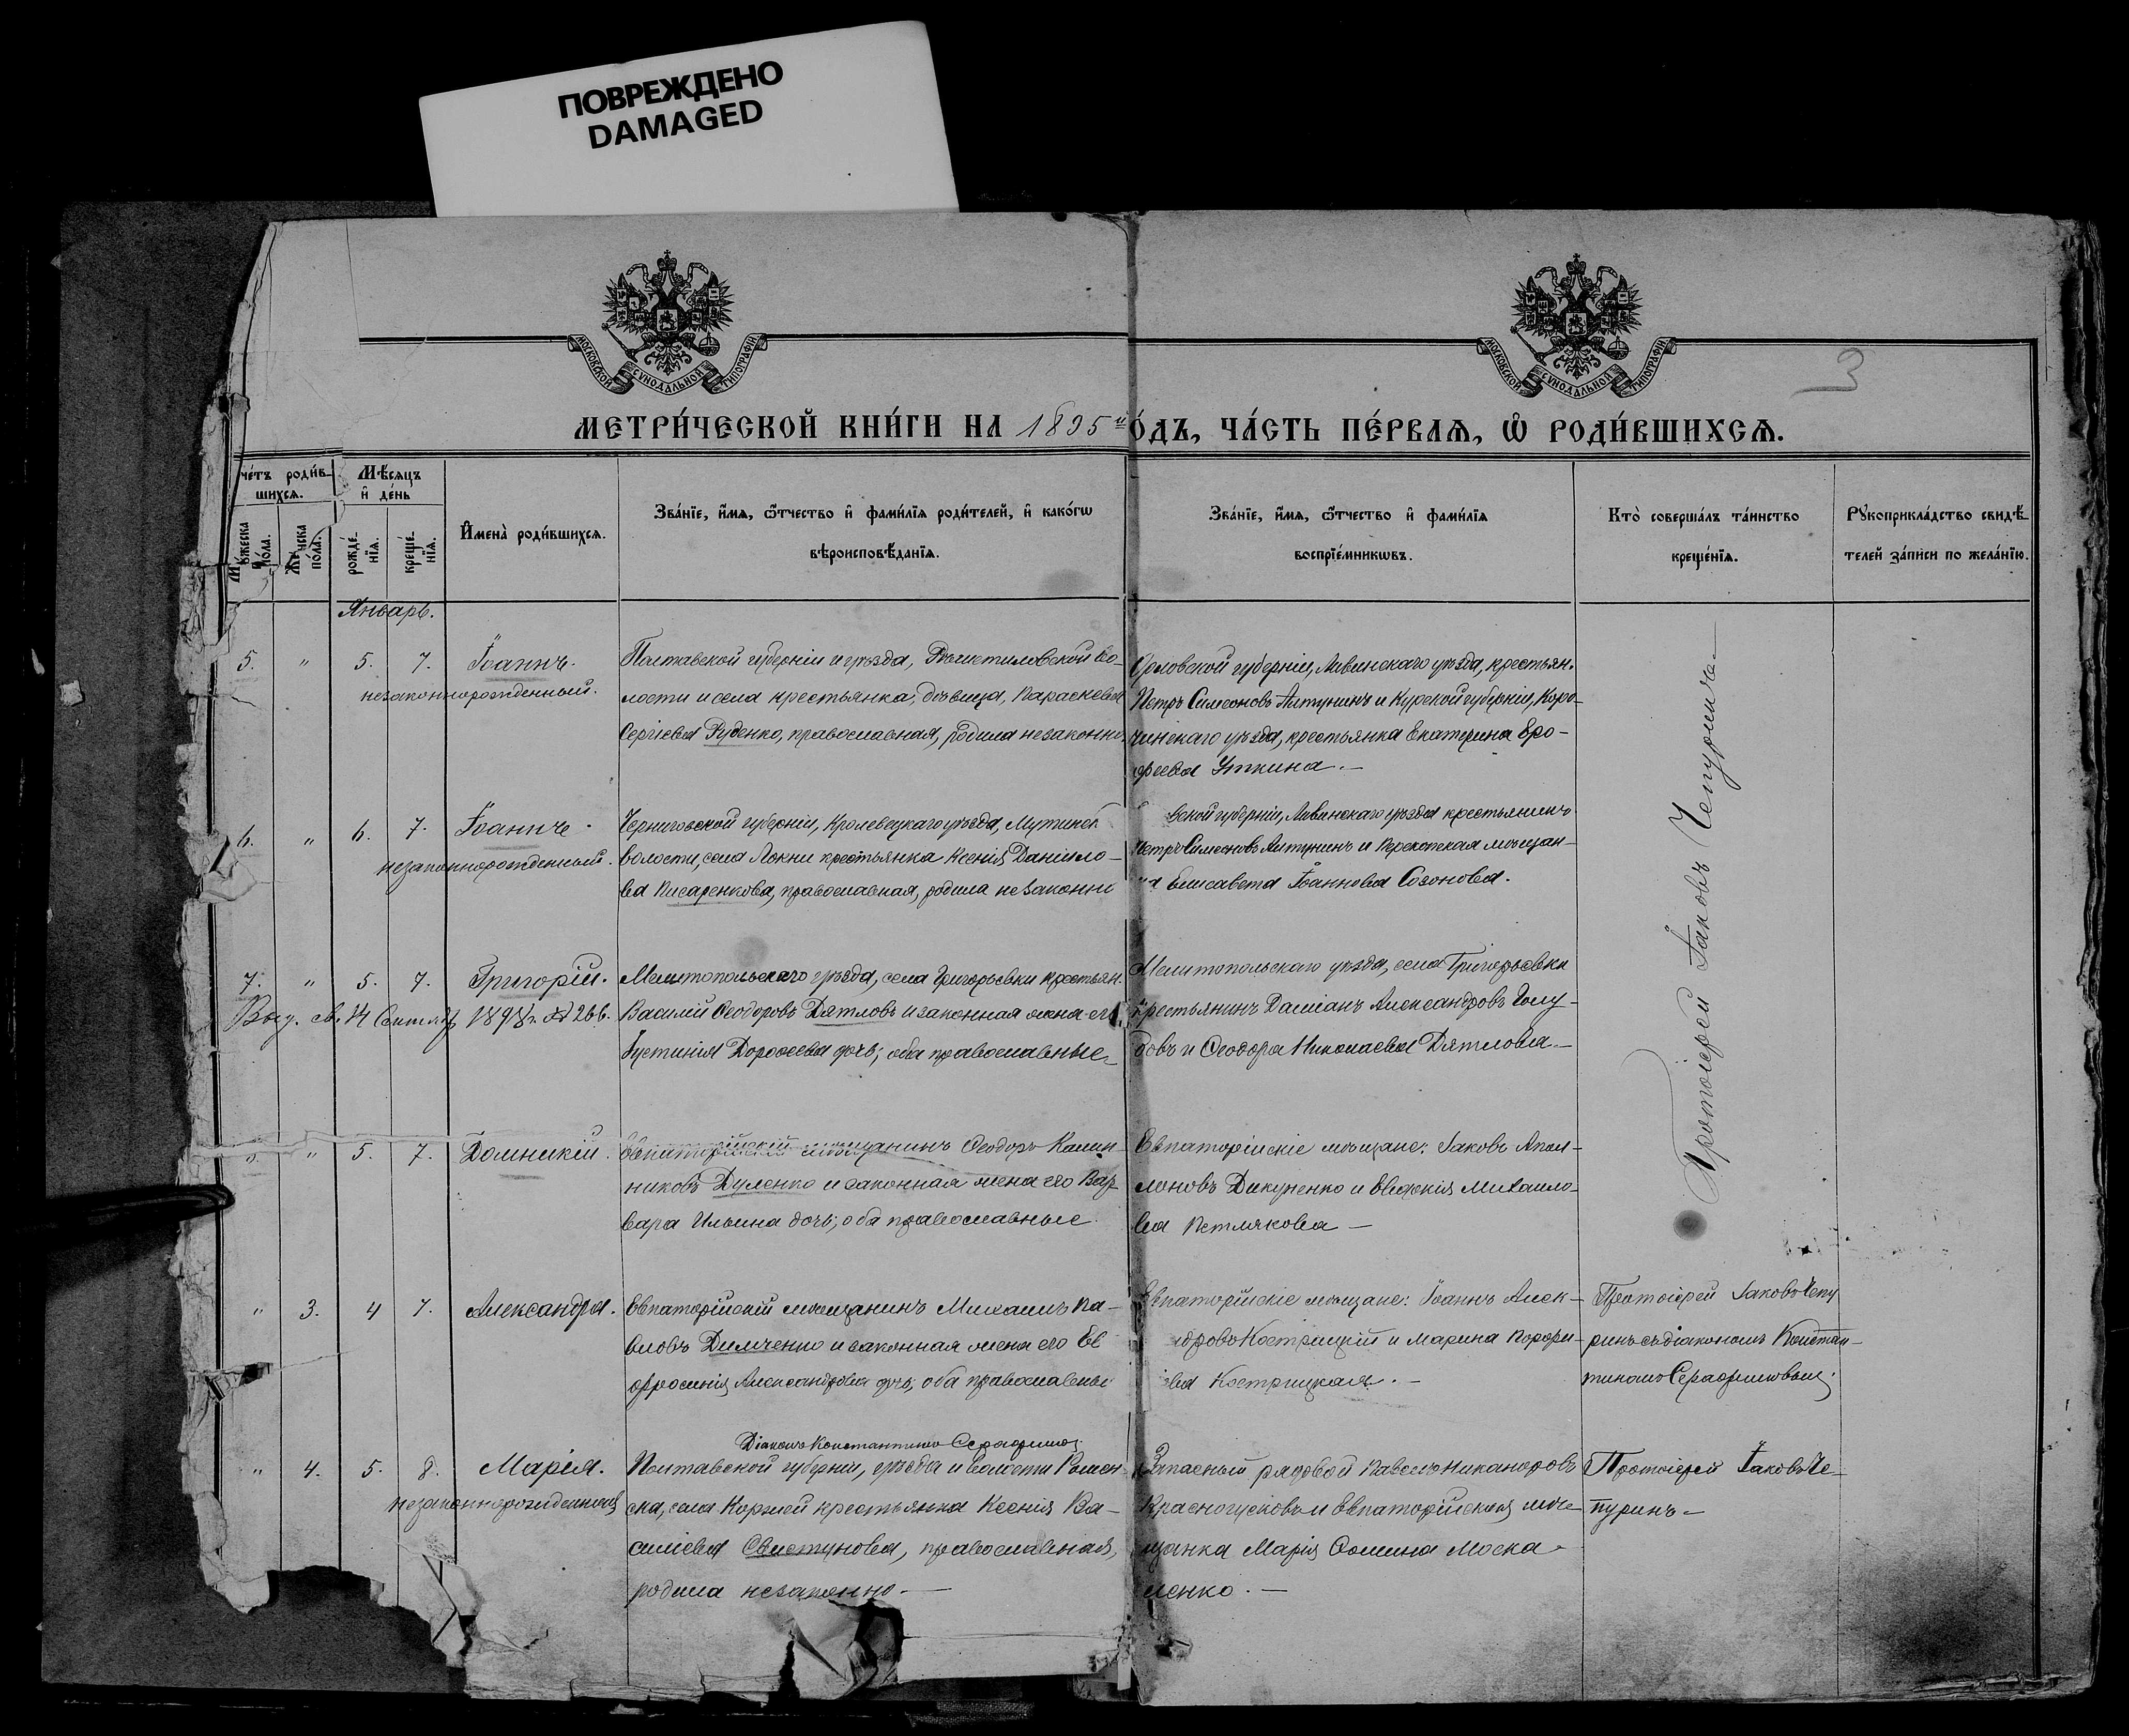 ПОВРЕЖДЕНО
DAMAGED
МОСКОВСКОЙ СѴНОДАЛЬНОЙ ТИПОГРАФІИ
МОСКОВСКОЙ СѴНОДАЛЬНОЙ ТИПОГРАФІИ
3
МЕТРИ́ЧЕСКОЙ КНИ́ГИ НА 1895 й О́ДЪ, ЧА́СТЬ ПЕ́РВАѦ, Ѡ҆ РОДИ́ВШИХСѦ.
че́тъ роди́в-
шихсѧ.
Мѣ́сѧцъ
и҆ де́нь
Мꙋ́жеска по́ла.
Же́нска по́ла.
рожде́нїѧ.
креще́нїѧ.
И҆мена̀ роди́вшихсѧ.
Зва́нїе, и҆́мѧ, ѻ҆́тчество и҆ фами́лїѧ роди́телей, и҆ како́гѡ
вѣроисповѣ́данїѧ.
Зва́нїе, и҆́мѧ, ѻ҆́тчество и҆ фами́лїѧ
воспрїе́мникѡвъ.
Кто̀ соверша́лъ та́инство
креще́нїѧ.
Рꙋкоприкла́дство свидѣ́-
телей за́писи по жела́нїю.
Январь.
5. " 5. 7. Іоаннъ.
незаконнорожденный.
Полтавской губерніи и уѣзда, Рѣшетиловской во-
лости и села крестьянка, дѣвица, Параскева
Сергіева Руденко, православная, родила незаконно.
Орловской губерніи, Ливенскаго уѣзда, крестьян.
Петръ Симеоновъ Алтунинъ и Курской губерніи, Коро-
чинскаго уѣзда, крестьянка Екатерина Еро-
феева Уткина.—
Протоіерей Іаковъ Чепуринъ—
6. " 6. 7. Іоаннъ.
незаконнорожденный.
Черниговской губерніи, Кролевецкаго уѣзда, Мутинск
волости, села Локни крестьянка Ксенія Даніило-
ва Писаренкова, православная, родила незаконно
вской губерніи, Ливенскаго уѣзда крестьянинъ
Петръ Симеоновъ Алтунинъ и Перекопская мѣщан-
ка Елисавета Іоаннова Созонова.
7. " 5. 7. Григорій.
Выд. св. 14 Сентяб. 1898 г. № 266.
Мелитопольскаго уѣзда, села Григорьевки крестьян.
Василій Ѳеодоровъ Дятловъ и законная жена его
Іустинія Дороѳеева дочь; оба православные
Мелитопольскаго уѣзда, села Григорьевки
крестьянинъ Даміанъ Александровъ Голу-
бовъ и Ѳеодора Николаева Дятлова.—
" 5. 7. Домникій.
Евпаторійскій мѣщанинъ Ѳеодоръ Калин-
никовъ Дуленко и законная жена его Вар-
вара Ильина дочь; оба православные
Евпаторійскіе мѣщане: Іаковъ Апол-
лоновъ Дикуненко и Евдокія Михаило-
ва Петлякова—
" 3. 4 7. Александра.
Евпаторійскій мѣщанинъ Михаилъ Па-
вловъ Димченко и законная жена его Ев
фросинія Александрова дочь; оба православны
Евпаторійскіе мѣщане: Іоаннъ Алек-
дровъ Кострицкій и Марина Порфи-
ева Кострицкая.—
Протоіерей Іаковъ Чепу
ринъ съ діакономъ Констан-
тиномъ Серафимовымъ
Діаконъ Константинъ Серафимов
" 4. 5. 8. Марія.
незаконнорожденная
Полтавской губерніи, уѣзда и волости Ромен-
ска, села Коржей крестьянка Ксенія Ва-
силіева Свистунова, православная,
родила незаконно.—
Запасный рядовой Павелъ Никаноровъ
Красногусковъ и Евпаторійская мѣ-
щанка Марія Ѳомина Моска-
ленко.—
Протоіерей Іаковъ Че-
пуринъ—